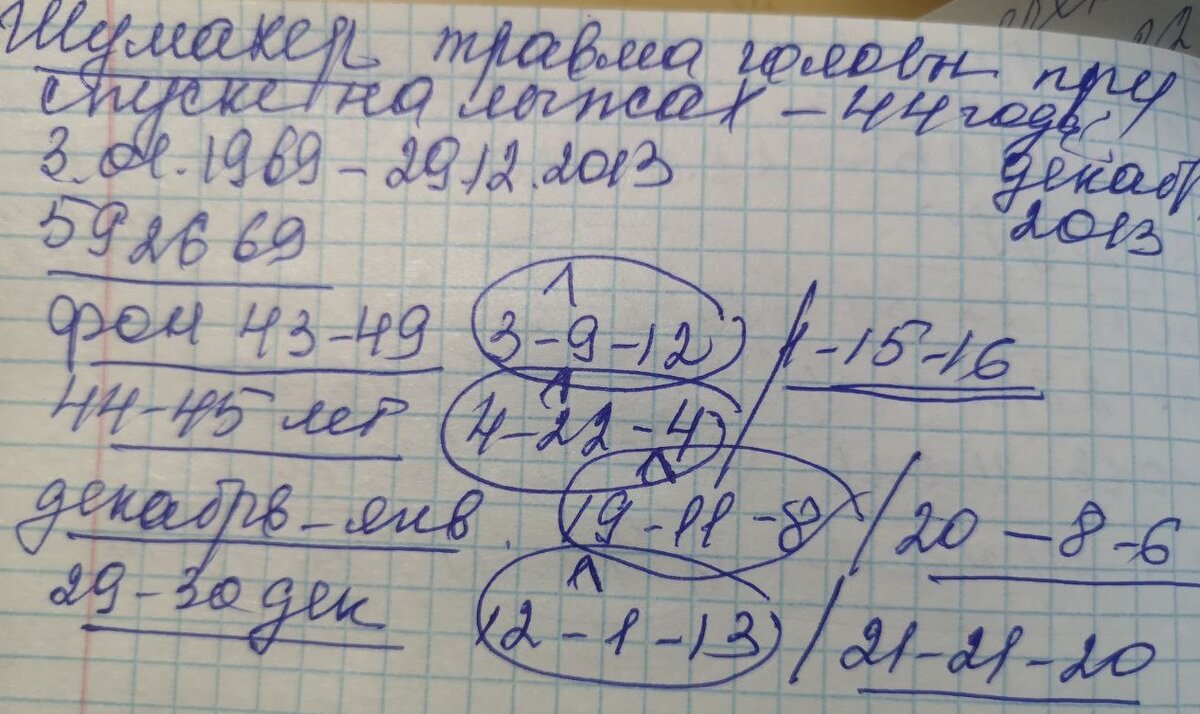 Шумахер травма головы при
спуске на лыжах – 44 года,
декабр
2013
3.01.1969 – 29.12.2013
592669
фон 43–49 3–9–12 / 1–15–16
44–45 лет 4–22–4
декабрь–янв. 19–11–8 / 20–8–6
29–30 дек 12–1–13 / 21–21–20